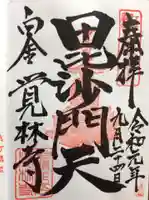 奉拝
令和元年
九月二十四日
毘沙門天
白金
覚林寺